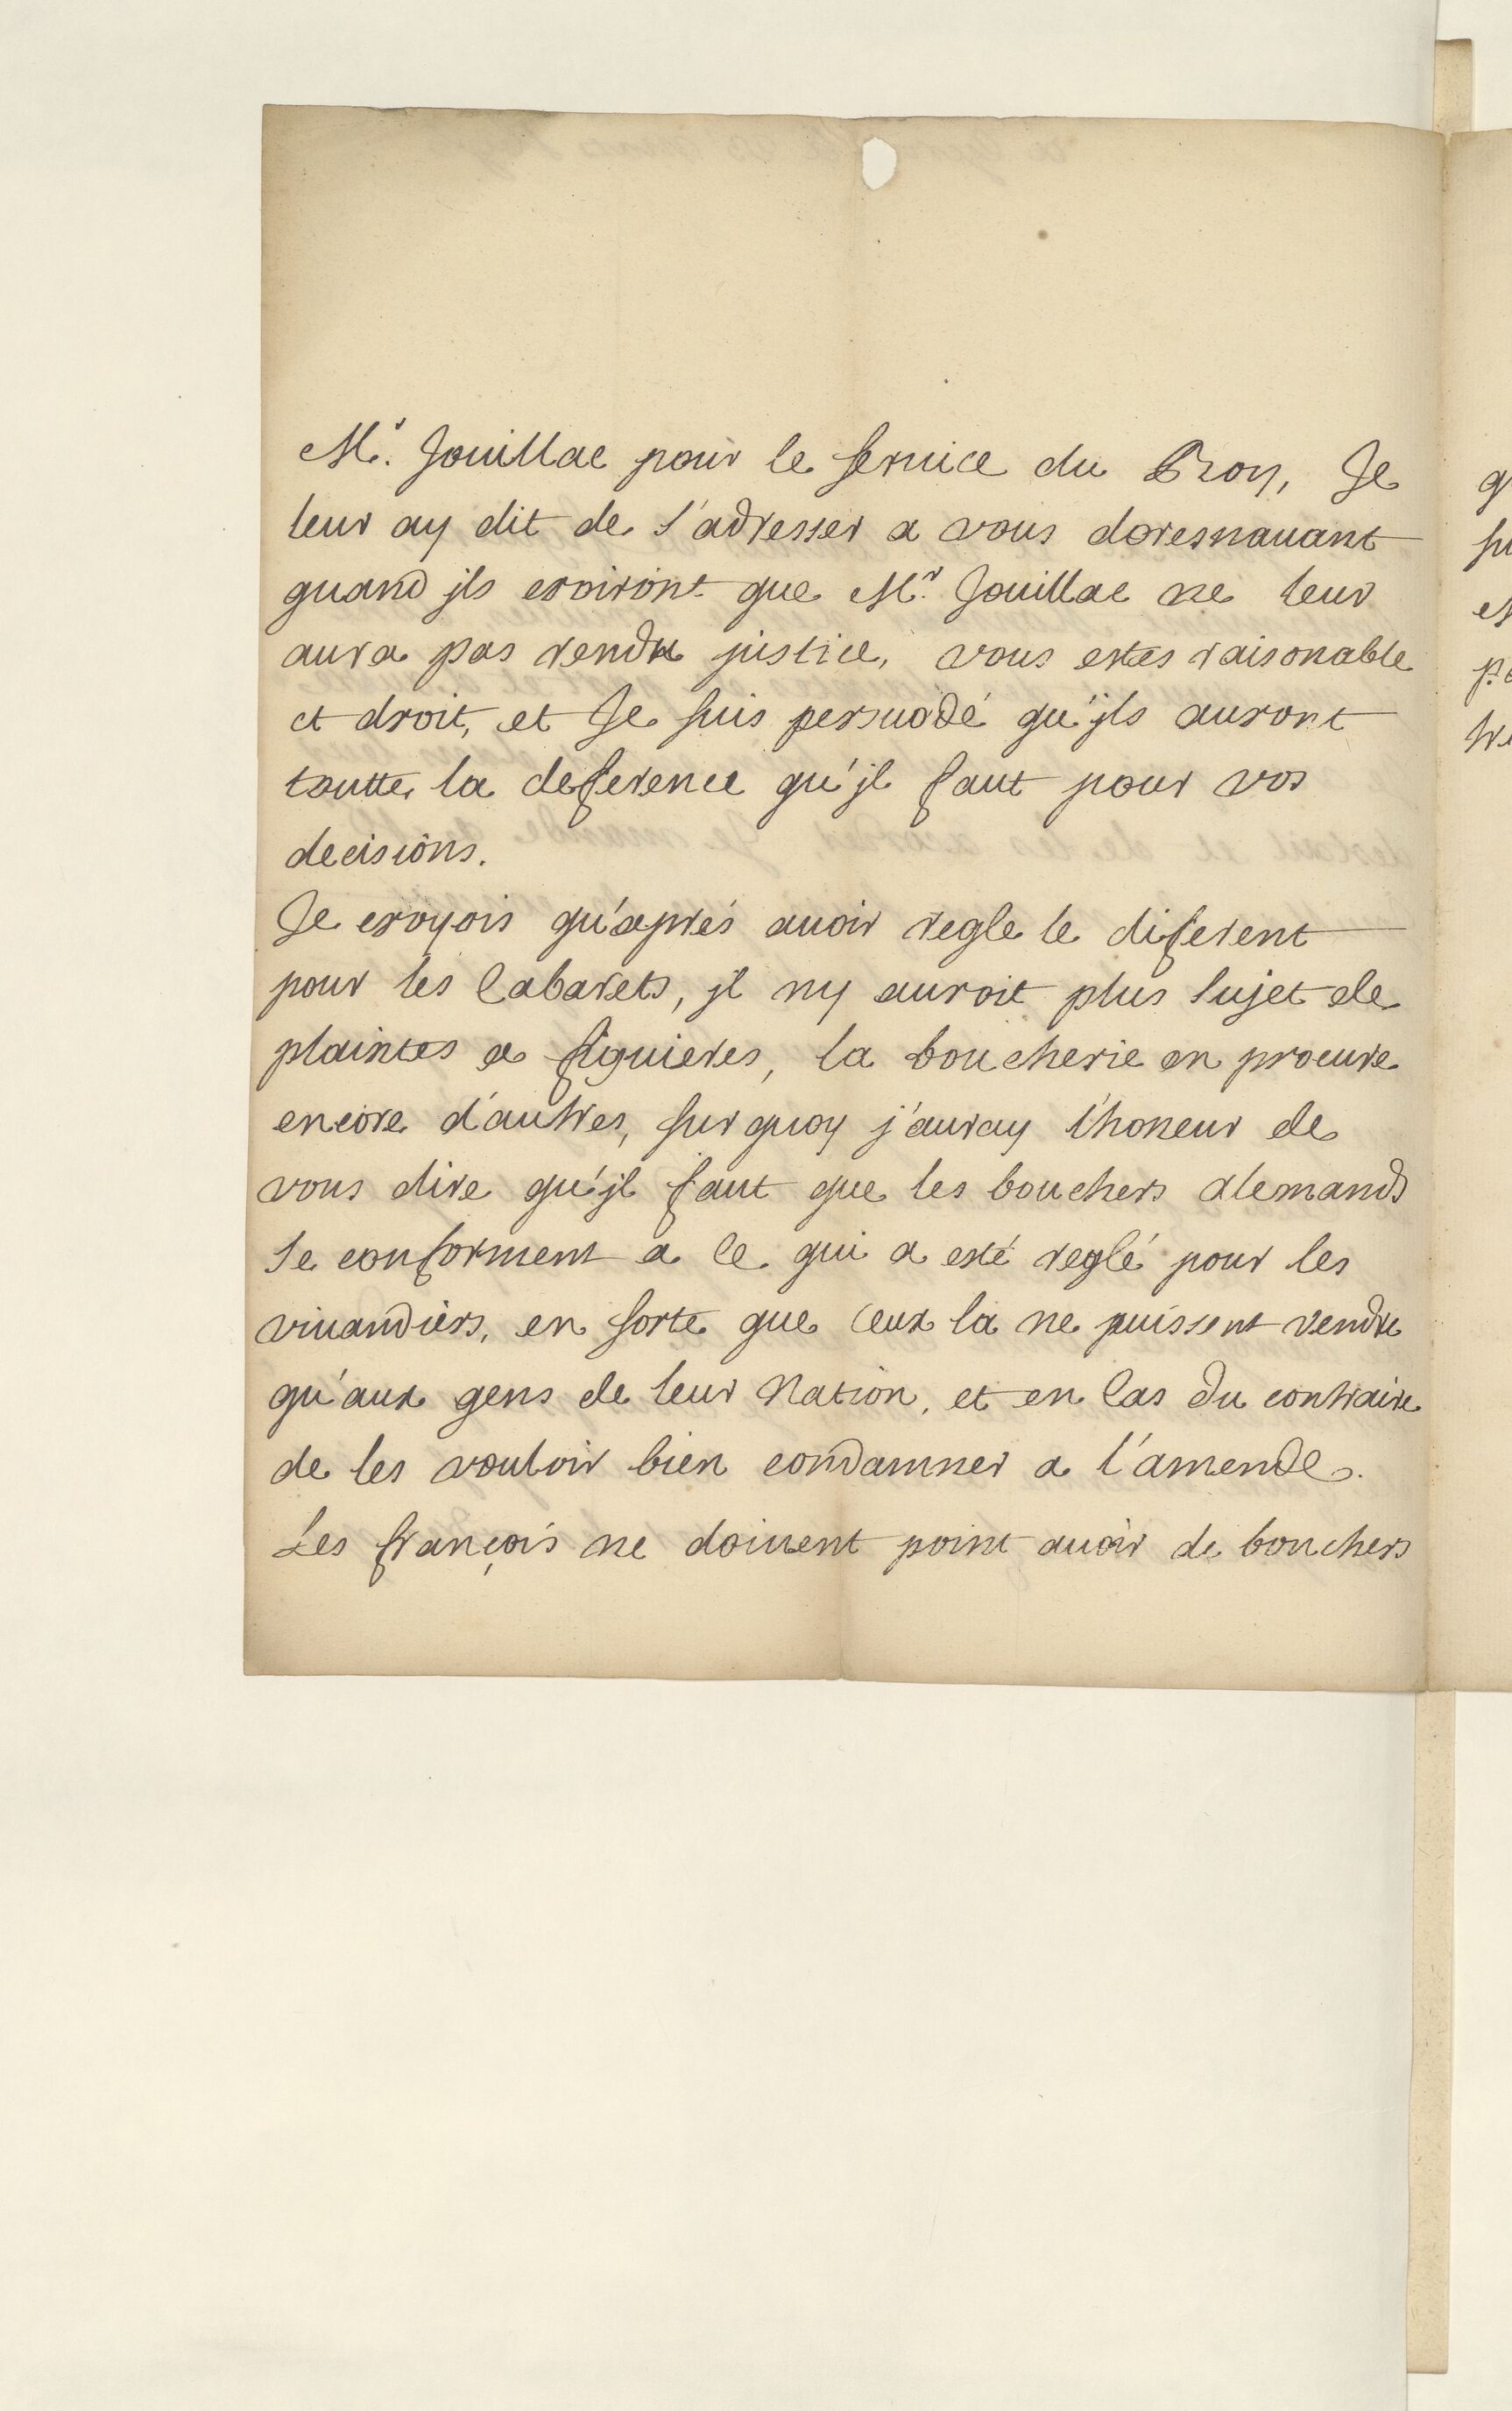 Mr. Jouillac pour le seruice du Roy, Je
leur ay dit de s'adresser a vous doresnauant
quand jls croiront que Mr. Jouillac ne leur
aura pas rendu justice, vous estes raisonable
et droit, et Je suis persuadé qu'jls auront
toutte la deference qu'jl faut pour vos
decisions.
Je croyois qu'aprés auoir regle le diferent
pour les Cabarets, jl ny auroit plus sujet de
plaintes a figuieres, la boucherie en procure
encore d'autres, sur quoy j'auray l'honeur de
vous dire qu'jl faut que les bouchers alemands
se conforment a ce qui a esté reglé pour les
viuandiers, en sorte que ceux la ne puissent vendre
qu'aux gens de leur Nation, et en Cas du contraire
de les vouloir bien condamner a l'amende.
Les françois ne doiuent point auoir de bouchers